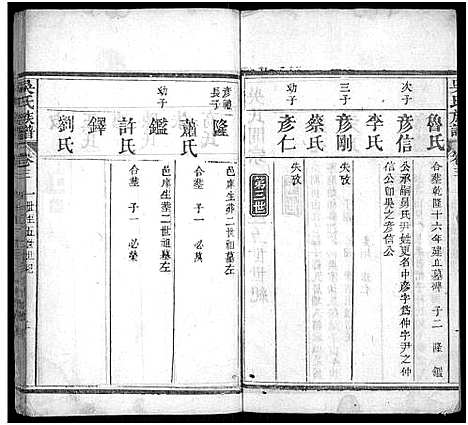 吳氏族譜
卷三
魯氏
合葬乾隆十六年建立墓碑 子二 隆 鑑
次子
彥信
公承嗣舅氏尹姓更名中彥字爲仲字尹之仲
信公卽吳之彥信公
李氏
三子
彥剛
失攷
蔡氏
幼子
彥仁
失攷
第三世
彥禮長子
隆
邑庠生葬二世祖墓左
蕭氏
合葬 子一 必萬
幼子
鑑
邑庠生葬二世祖墓左
許氏
合葬 子一 必榮
鐸
劉氏
吳氏族譜
卷三
一世至五世世紀